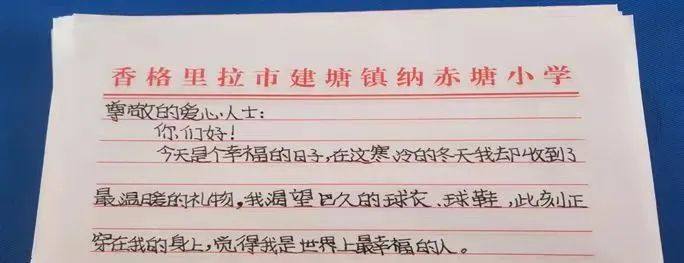 香格里拉市建塘镇纳赤塘小学
尊敬的爱心人士：
你们好！
今天是个幸福的日子，在这寒冷的冬天我却收到了
最温暖的礼物，我渴望已久的球衣、球鞋，此刻正
穿在我的身上，觉得我是世界上最幸福的人。